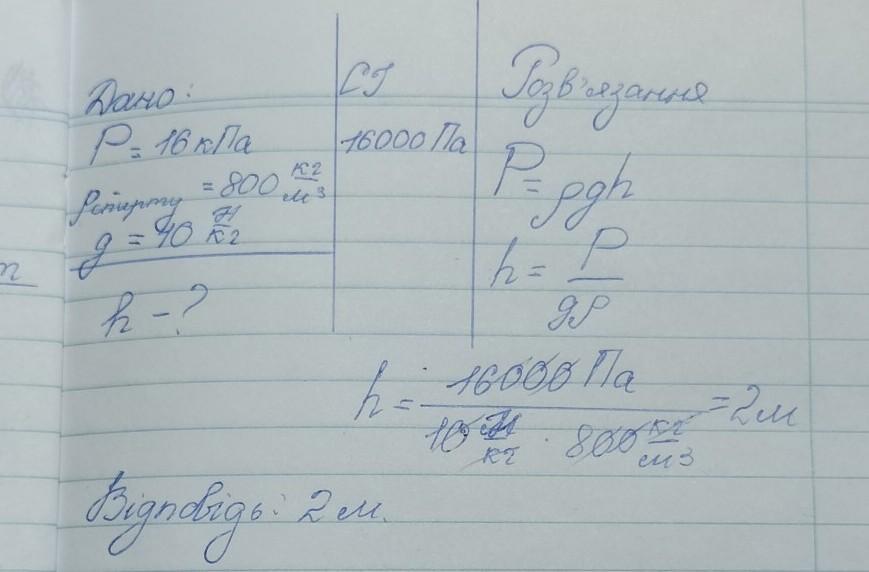 Дано:
P = 16 кПа
ρспирту = 800 кг/м3
g = 10 Н/кг
h - ?
СІ
16000 Па
Розв'язання
P = ρgh
h = P/gρ
h = 16000 Па / 10 Н/кг · 800 кг/м3 = 2 м
Відповідь: 2 м.